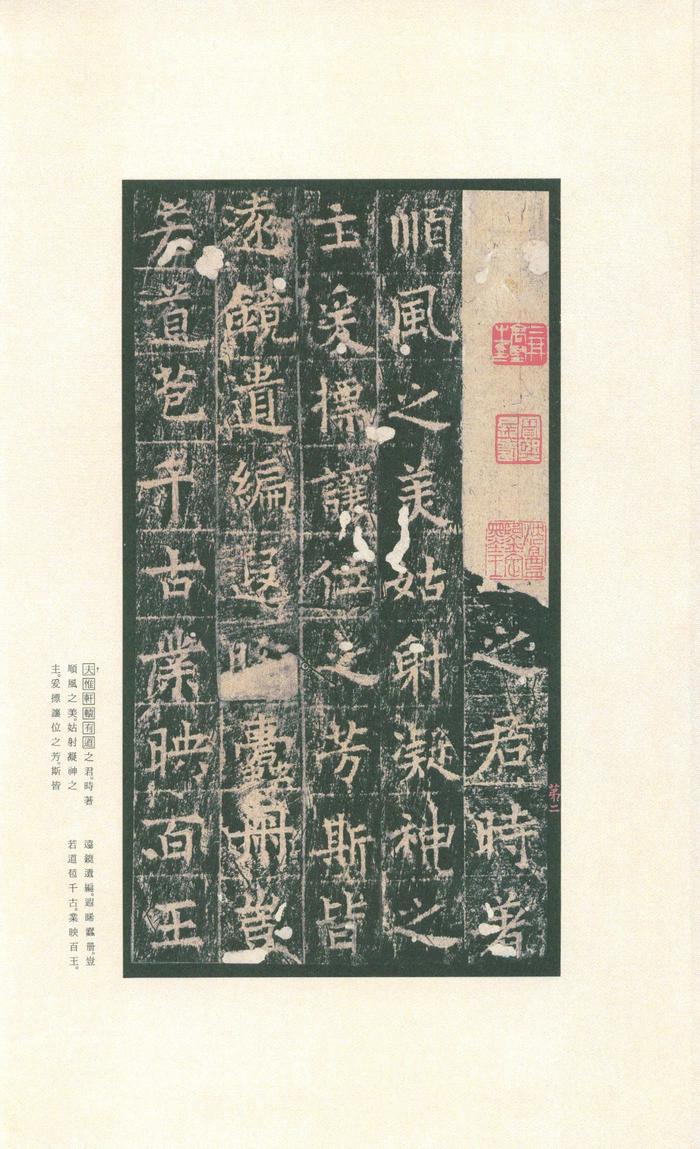 之君時著
順風之美姑射凝神之
主爰摽讓位之芳斯皆
遠鏡遺編遐晞蠹冊豈
若道苞千古業映百王
第二
夫惟軒轅有道之君。時著
順風之美。姑射凝神之
主。爰摽讓位之芳。斯皆
遠鏡遺編。遐晞蠹册。豈
若道苞千古。業映百王。